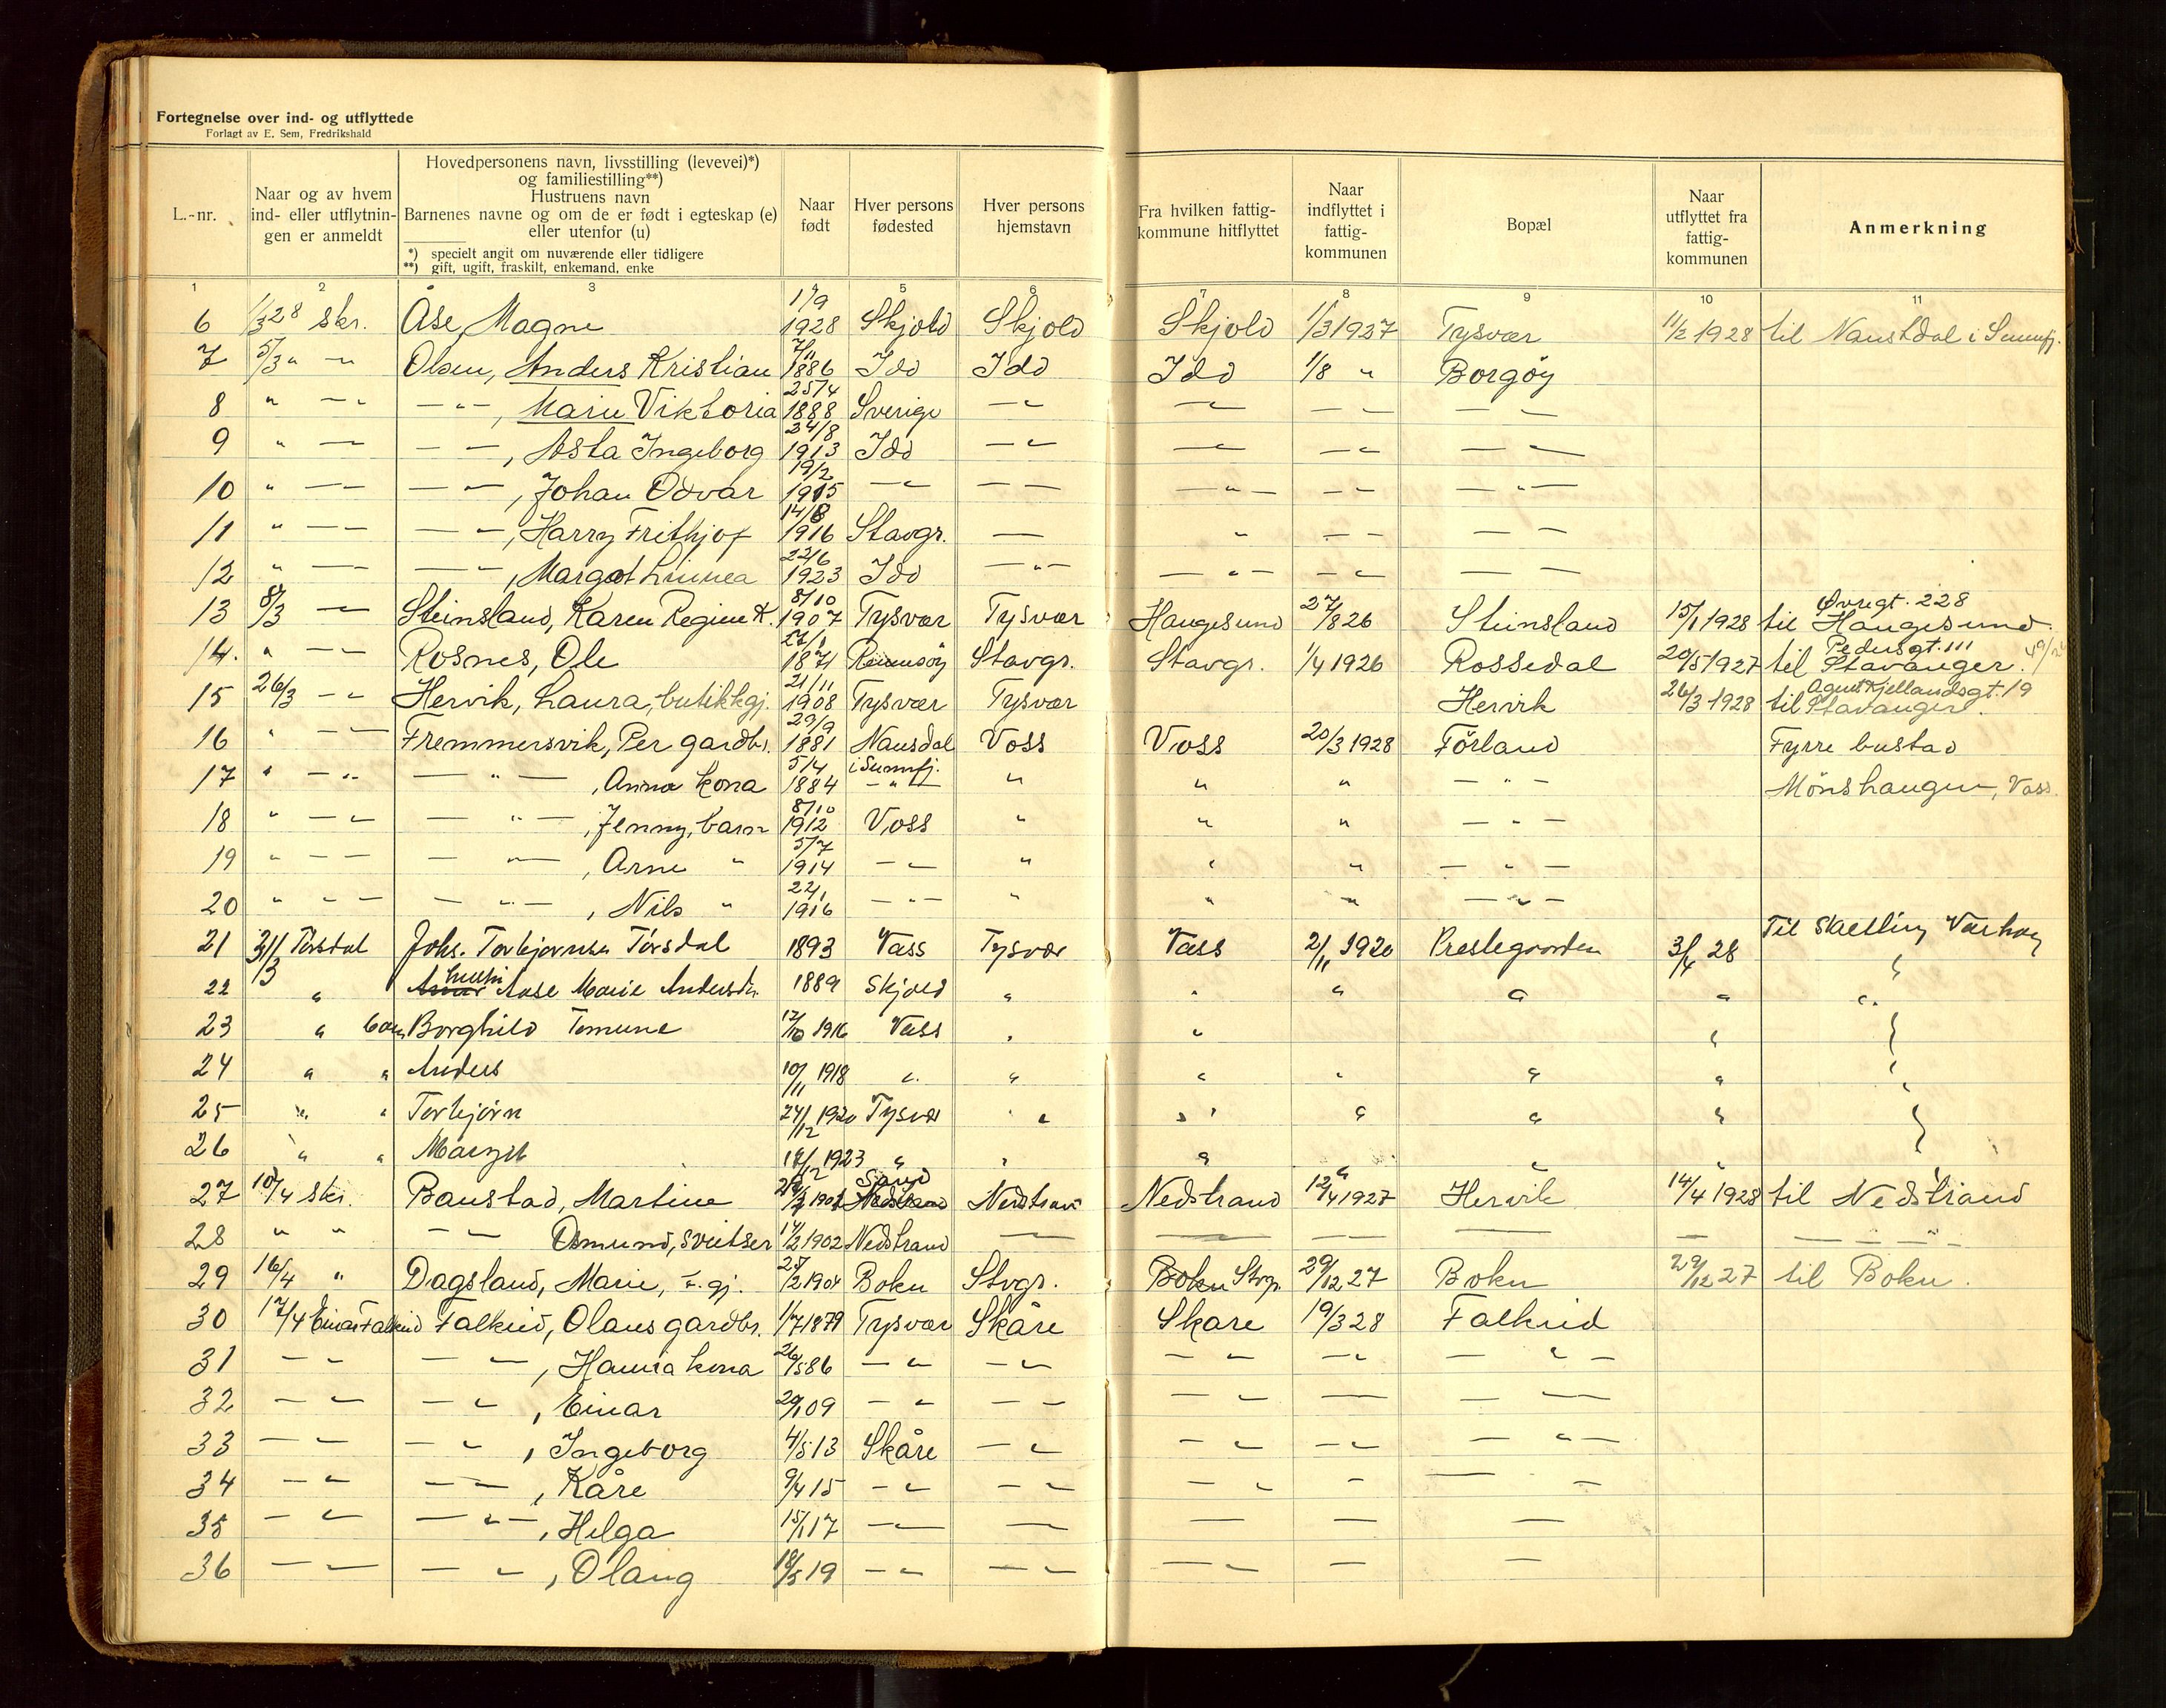 Fortegnelse over ind- og utflyttede
Forlagt av E. Sem, Fredrikshald
L.-nr. | Naar og av hvem ind- eller utflytnin-gen er anmeldt | Hovedpersonens navn, livsstilling (levevei)*) og familiestilling**) Hustruens navn Barnenes navne og om de er født i egteskap (e) eller utenfor (u) *) specielt angit om nuværende eller tidligere **) gift, ugift, fraskilt, enkemand, enke | Naar født | Hver persons fødested | Hver persons hjemstavn | Fra hvilken fattig-kommune hitflyttet | Naar indflyttet i fattig-kommunen | Bopæl | Naar utflyttet fra fattig-kommunen | Anmerkning
1 2 3 4 5 6 7 8 9 10 11
6 1/3 28 skr. Åse, Magne 1/9 1928 Skjold Skjold Skjold 1/3 1927 Tysvær 11/2 1928 til Naustdal i Sunnfj.
7 5/3 " – " Olsen, Anders Kristian 7/11 1886 Idd Idd Idd 1/8 " Borgöy
8 " – " – " – , Marie Viktoria 25/4 1888 Sverige – " – " – – – "
9 " – – – – , Asta Ingeborg 24/8 1913 Idd – " – " – " – "
10 " – – – " – , Johan Odvar 19/2 1915 – " – – – " – – – – " –
11 " – – – " , Harry Frithjof 14/8 1916 Stavgr. – " – – – –
12 " – – – " , Margot Linnea 22/6 1923 Idd – " – – " – – " – –
13 8/3 – " Steinsland, Karen Regine K. 8/10 1907 Tysvær Tysvær Haugesund 27/8 26 Steinsland 15/1 1928 til Øvregt. 228 Haugesund.
14. " – – Rosnes, Ole 1871 Rennsöy Stavgr. Stavgr. 1/4 1926 Rossedal 20/5 1927 til Pedersgt. 111 Stavanger.
15 26/3 – " Hervik, Laura, butikkgj. 21/11 1908 Tysvær Tysvær Hervik 26/3 1928 til Kjellandsgt. 19 Stavanger.
16 " – – Fremmersvik, Per gardbr. 29/9 1881 Nausdal i Sunnfj. Voss Voss 20/3 1928 Förland Fyrre bustad
17 " – " – " – , Anna kona 5/4 1884 – " – " " " – " – Mönshaugen, Voss.
18 " – " – " – , Jenny, barn 8/10 1912 Voss " " " – " –
19 " – – – " – , Arne " 5/7 1914 – " " " " – " –
20 " – – – " – , Nils " 22/1 1916 – " – " " " – " –
21 31/3 Törsdal Johs. Torbjornsen Törsdal 1893 Vass Tysvær Vass 2/11 1920 Prestegaarden 3/4 28 Til Skretting Varhaug
22 " Aase Marie Andersdtr. 1889 Skjold " " " " " "
23 " barn Borghild Tomine 12/10 1916 Vass " " "
24 " " Anders 10/11 1918 " " " " " " "
25 " " Torbjörn 24/12 1920 Tysvær " " " " "
26 " " Margit 18/12 1923 " " " " "
27 10/4 skr. Baustad, Martine Sand Nedstrand Nedstrand 12/4 1927 Hervik 14/4 1928 til Nedstrand
28 " " – " Osmund, sveitser 14/2 1902 Nedstrand – – – – – – – – " –
29 16/4 " Dagsland, Marie, 25/2 1904 Bokn Stvgr. Bokn Stvgr. 29/12 27 Bokn 29/12 27 til Bokn.
30 17/4 Einar Falkeid Falkeid, Olaus gardbr. 1/7 1879 Tysvær Skåre Skare 19/3 28 Falkeid
31 – " – " , Hanna kona 26/5 86 – " – " – " – " – " –
32 – " – " , Einar 29/1 09 – " – – – " – – –
33 – – – " , Ingeborg 4/5 13 Skåre – " – " – " – " –
34 – " – – , Kåre 9/4 15 – " – " – " – – –
35 – " – " – , Helga 15/1 17 – – – – –
36 – – – " , Olaug 18/5 19 – " – " – – –